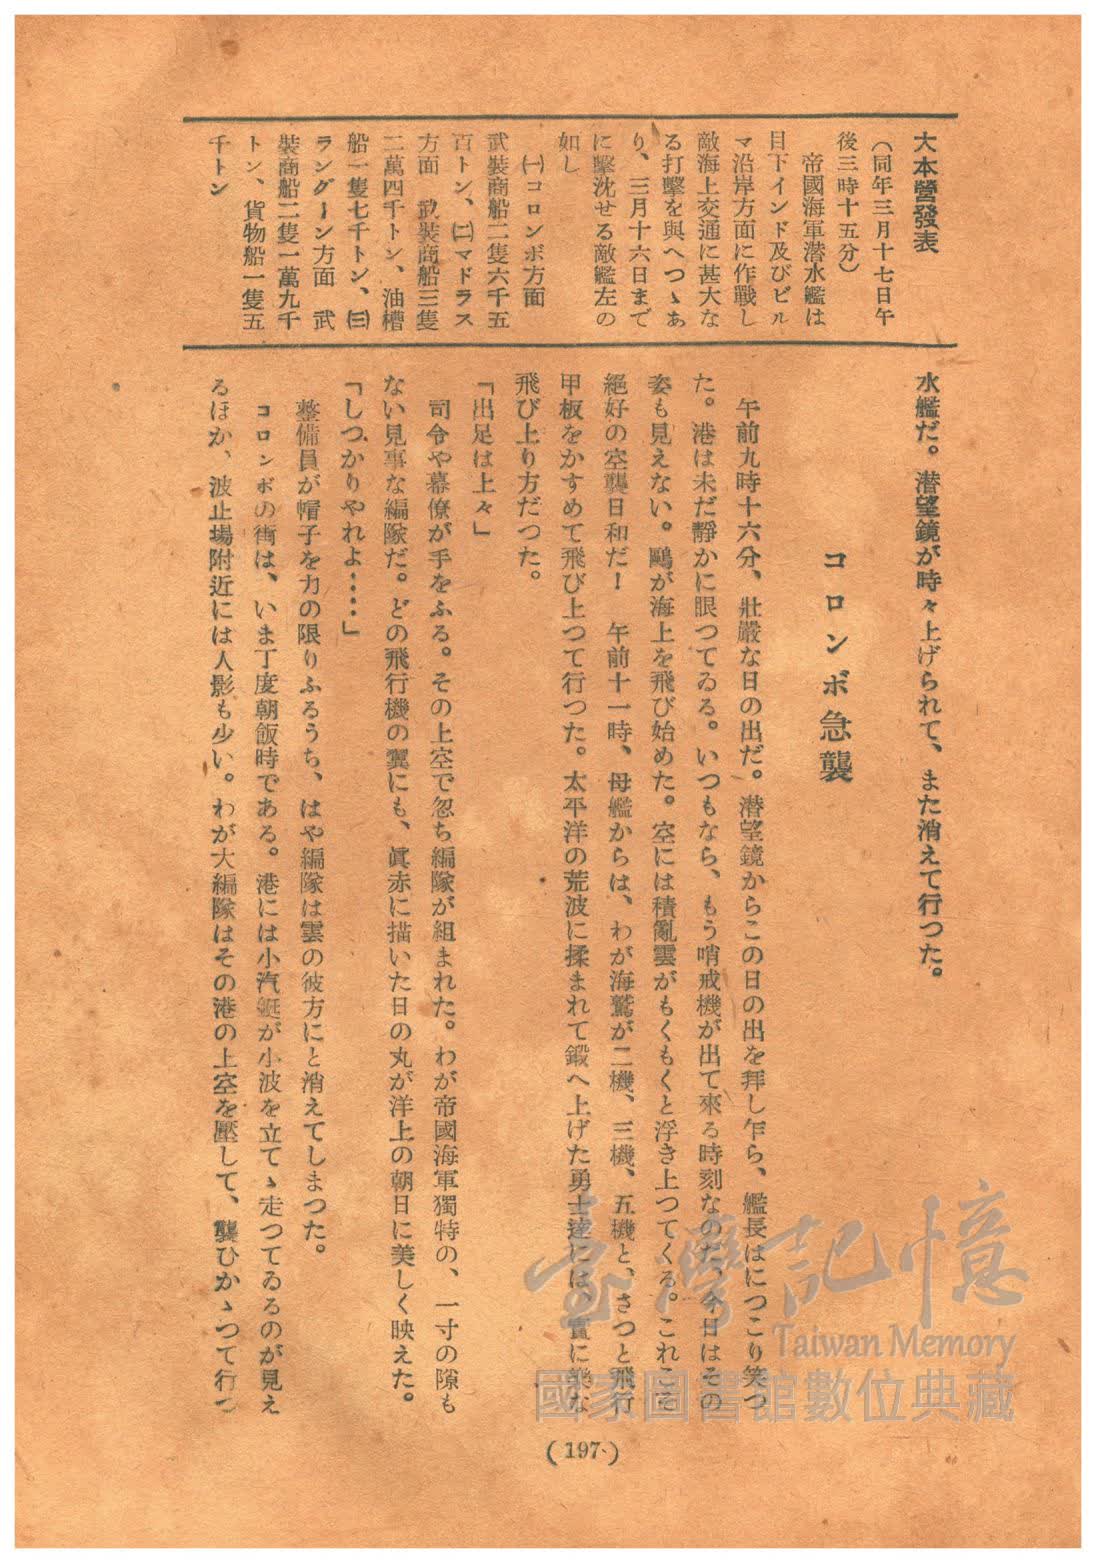 大本營發表
(同年三月十七日午
後三時十五分)
帝國海軍潜水艦は
目下インド及びビル
マ沿岸方面に作戰し
敵海上交通に甚大な
る打擊を與へつゝあ
り、三月十六日まで
に擊沈せる敵艦左の
如し
㈠コロンボ方面
武裝商船二隻六千五
百トン、㈡マドラス
方面 武裝商船三隻
二萬四千トン、油槽
船一隻七千トン、㈢
ラングーン方面 武
裝商船二隻一萬九千
トン、貨物船一隻五
千トン
水艦だ。潜望鏡が時々上げられて、また消えて行つた。
コロンボ急襲
午前九時十六分、壯嚴な日の出だ。潜望鏡からこの日の出を拜し乍ら、艦長はにつこり笑つ
た。港は未だ靜かに眠つてゐる。いつもなら、もう哨戒機が出て來る時刻なのだ、今日はその
姿も見えない。鷗が海上を飛び始めた。空には積亂雲がもくもくと浮き上つてくる。これこそ
絕好の空襲日和だ! 午前十一時、母艦からは、わが海鷲が二機、三機、五機と、さつと飛行
甲板をかすめて飛び上つて行つた。太平洋の荒波に揉まれて鍛へ上げた勇士達には、實に樂な
飛び上り方だつた。
「出足は上々」
司令や幕僚が手をふる。その上空で忽ち編隊が組まれた。わが帝國海軍獨特の、一寸の隙も
ない見事な編隊だ。どの飛行機の翼にも、眞赤に描いた日の丸が洋上の朝日に美しく映えた。
「しつかりやれよ‥‥」
整備員が帽子を力の限りふるうち、はや編隊は雲の彼方にと消えてしまつた。
コロンボの街は、いま丁度朝飯時である。港には小汽艇が小波を立てゝ走つてゐるのが見え
るほか、波止場附近には人影も少い。わが大編隊はその港の上空を壓して、襲ひかゝつて行つ
(197)
臺灣記憶
Taiwan Memory
國家圖書館數位典藏